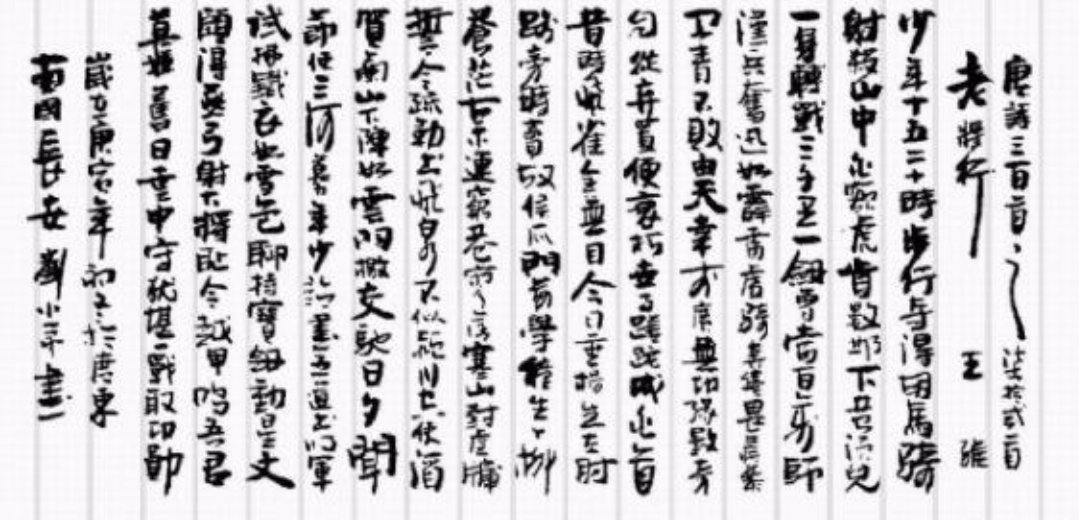 唐詩三百首之柒拾弍首
老將行 王維
少年十五二十時步行奪得胡馬騎
射殺山中白額虎肯數鄴下黃鬚兒
一身轉戰三千里一劍曾當百萬師
漢兵奮迅如霹靂虜騎奔騰畏蒺藜
卫青不敗由天幸李廣無功緣數奇
自從弃置便衰朽世事蹉跎成白首
昔時飛雀全無目今日垂楊生左肘
路旁時賣故侯瓜門前學種先生柳
蒼茫古木連窮巷寥落寒山對虛牖
誓令疏勒出飛泉不似潁川空使酒
賀蘭山下陳如雲羽檄交馳日夕聞
節使三河募年少詔書五道出將軍
試拂鐵衣如雪色聊持寶劍動星文
願得燕弓射大將恥令越甲鳴吾君
莫嫌舊日雲中守猶堪一戰取功勛
歲在庚寅年初冬於廣東
長安劉小平書